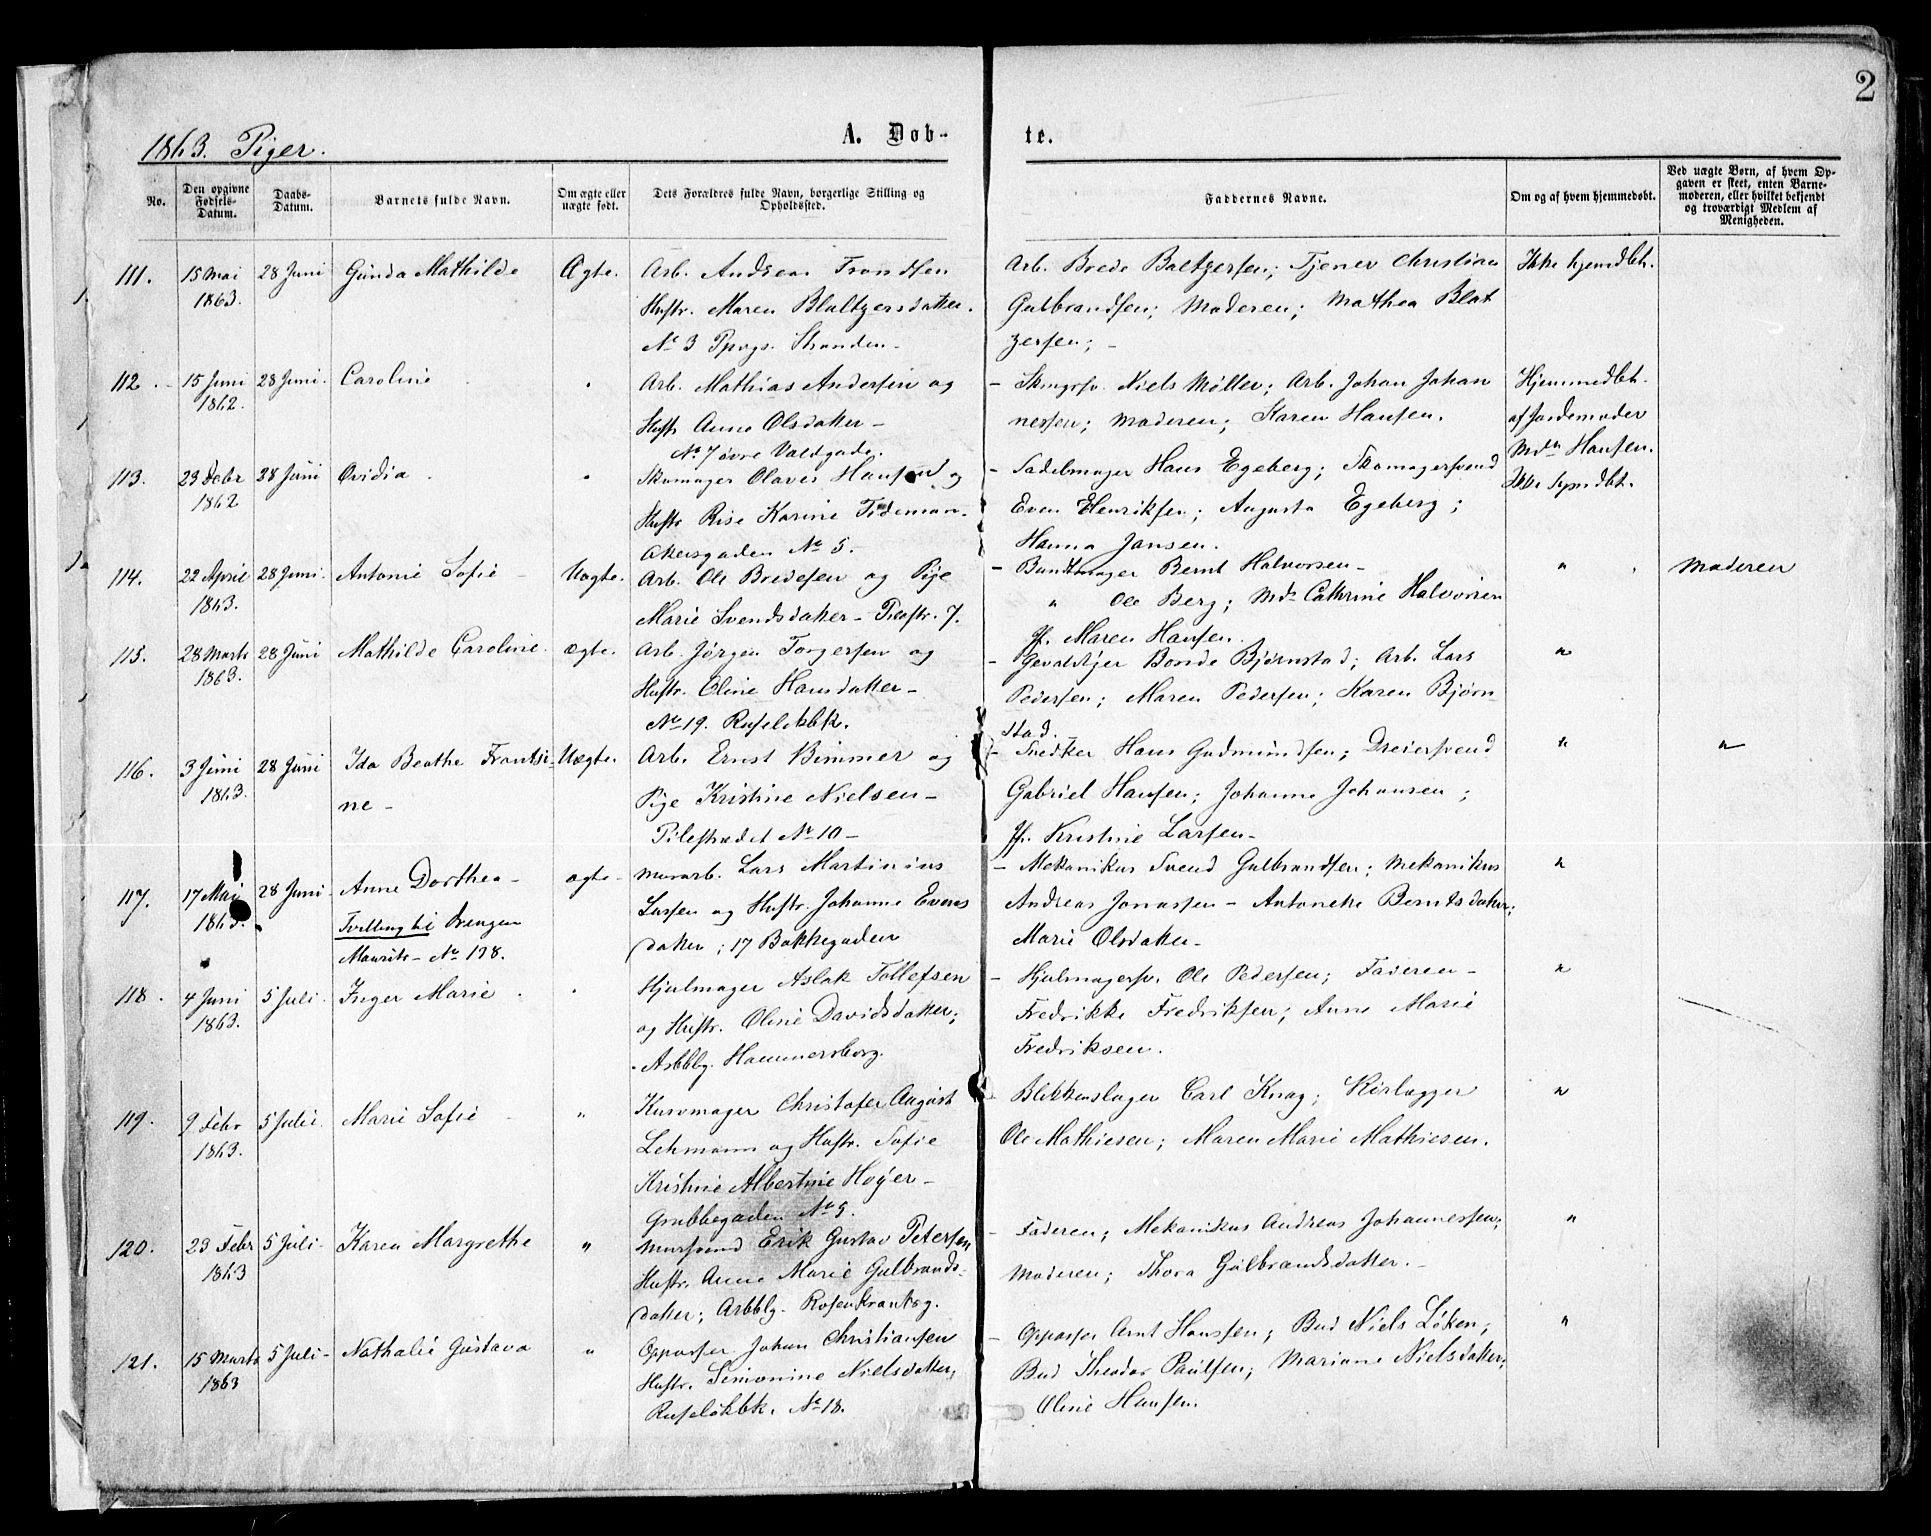 2
1863. Piger.
A. Døb-
te.
No.
Den opgivne Fødsels-Datum.
Daabs-Datum.
Barnets fulde Navn.
Om ægte eller uægte født.
Dets Forældres fulde Navn, borgerlige Stilling og Opholdssted.
Faddernes Navne.
Om og af hvem hjemmedøbt.
Ved uægte Børn, af hvem Opgaven er skeet, enten Barnemoderen, eller hvilket bekjendt og troværdigt Medlem af Menigheden.
111. 15 Mai 28 Juni Gunda Mathilde Ægte. Arb. Andreas Trondsen Arb. Brede Baltzersen; Tjener Christian Ikke hjemdbt.
1863. Hustr. Maren Blaltzersdatter. Gulbrandsen; Moderen; Mathea Blat
No 3 Ppvgs. Stranden - zersen; -
112. - 15 Juni 28 Juni. Caroline " Arb. Mathias Andersen og - Niels Møller; Arb. Johan Johan Hjemmedbt.
1862. Hustr Anne Olsdatter - nessen; Moderen; Karen Hansen. af Jordemoder
No 7 øvre Voldgade. Mdm Hansen.
113. 23 Febr 28 Juni Ovidia " Skomager Olaves Hansen og - Sadelmager Hans Egeberg; Skomagersvend Ikke hjemdbt.
1862 Hustr Rise Karine Tideman. Even Henriksen; Augusta Egeberg;
Akersgaden No 5. Hanna Jansen.
114. 22 April 28 Juni. Antonie Sofie - Uægte. Arb. Ole Bredesen og Pige - Buntmager Bernt Halvorsen - " Moderen
1863. Marie Svendsdatter - Pilestr. 7. " Ole Berg; Mdm Cathrine Halvorsen
Jf. Maren Hansen.
115. 28 Marts 28 Juni Mathilde Caroline. ægte. Arb. Jørgen Torgersen og - Bonde Bjørnstad; Arb. Lars "
1863. Hustr. Oline Hansdatter - Pedersen; Maren Pedersen; Karen Bjørn
No 19. Ruseløkbk. stad.
116. 3 Juni 28 Juni Ida Beathe Frantsi- Uægte. Arb. Ernst Bimmer og - Snedker Hans Gudmundsen; Dreiersvend " "
1863. ne - Pige Kristine Nielsen - Gabriel Hansen; Johanne Johansen;
Pilestrædet No 10 - Jf. Kristine Larsen -
117. 17 Mai 28 Juni - Anne Dorthea - ægte - Murarb. Lars Martinius - Mekanikus Svend Gulbrandsen; Mekanikus "
1863. Tvilling til Drengen Larsen og Hustr. Johanne Evens Andreas Jonassen - Antonette Berntsdatter;
Maurits - No 128. datter; 17 Bakkegaden Marie Olsdatter -
118. 4 Juni 5 Juli. Inger Marie . " Hjulmager Aslak Tollefsen - Hjulmagersv. Ole Pedersen; Faderen - "
1863. og Hustr. Oline Davidsdatter; Fredrikke Fredriksen; Anne Marie
Arbblg. Hammersborg. Fredriksen.
119. 9 Febr 5 Juli. Marie Sofie - " Kurvmager Christofer August - Blikkenslager Carl Knag; Rørlægger "
1863. Lehmann og Hustr. Sofie Ole Mathiesen; Maren Marie Mathiesen.
Kristine Albertine Høyer -
Grubbegaden No 5.
120. 23 Febr 5 Juli - Karen Margrethe " Mursvend Erik Gustav Petersen - Faderen; Mekanikus Andreas Johannessen; "
1863 Hustr. Anne Marie Gulbrands- Moderen; Thora Gulbrandsdatter. -
datter; Arbblg. Rosenkrantsg.
121. 15 Marts 5 Juli - Nathalie Gustava " Oppasser Johan Christiansen - Oppasser Arnt Hanssen; Bud Niels Løken; "
1863 Hustr. Simonine Nielsdatter, Bud Theodor Paulsen; Mariane Nielsdatter;
Ruseløkbk. No 18. Oline Hansen.